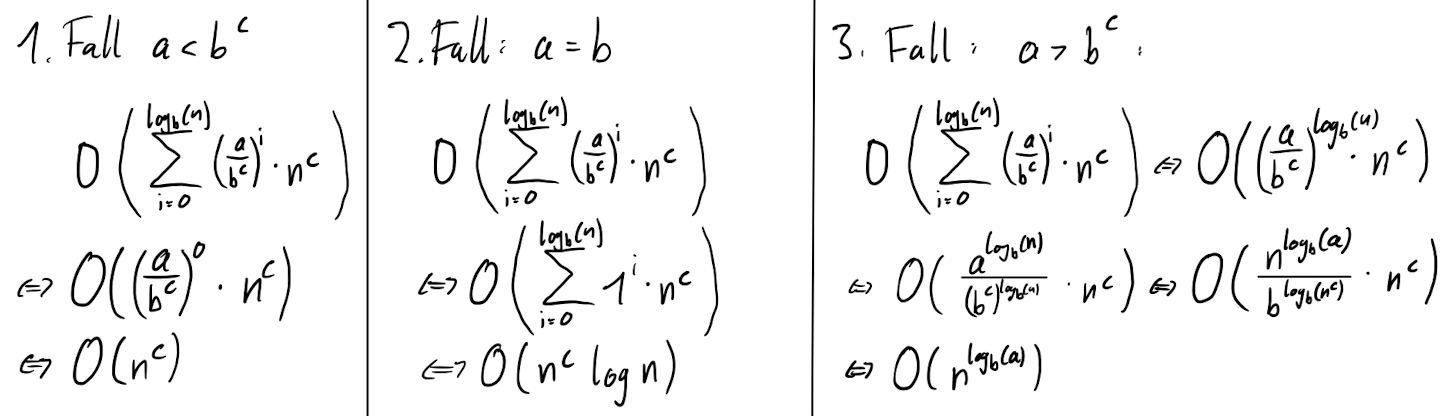 1. Fall a < b^c
O(∑_{i=0}^{log_b(n)} (a/b^c)^i · n^c)
⇔ O((a/b^c)^0 · n^c)
⇔ O(n^c)
2. Fall: a = b
O(∑_{i=0}^{log_b(n)} (a/b^c)^i · n^c)
⇔ O(∑_{i=0}^{log_b(n)} 1^i · n^c)
⇔ O(n^c log n)
3. Fall: a > b^c:
O(∑_{i=0}^{log_b(n)} (a/b^c)^i · n^c) ⇔ O((a/b^c)^{log_b(n)} · n^c)
⇔ O(a^{log_b(n)}/(b^c)^{log_b(n)} · n^c) ⇔ O(n^{log_b(a)}/b^{log_b(n^c)} · n^c)
⇔ O(n^{log_b(a)})